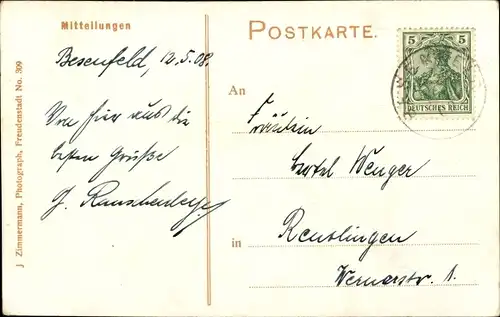 Mitteilungen
POSTKARTE.
Besenfeld, 12.5.08.
Von hier aus die
besten Grüße
J. Rauschenberger
J Zimmermann, Photograph, Freudenstadt No. 309
5 5
DEUTSCHES REICH
An
Fräulein
Wenger
in
Reutlingen
Wernerstr. 1.